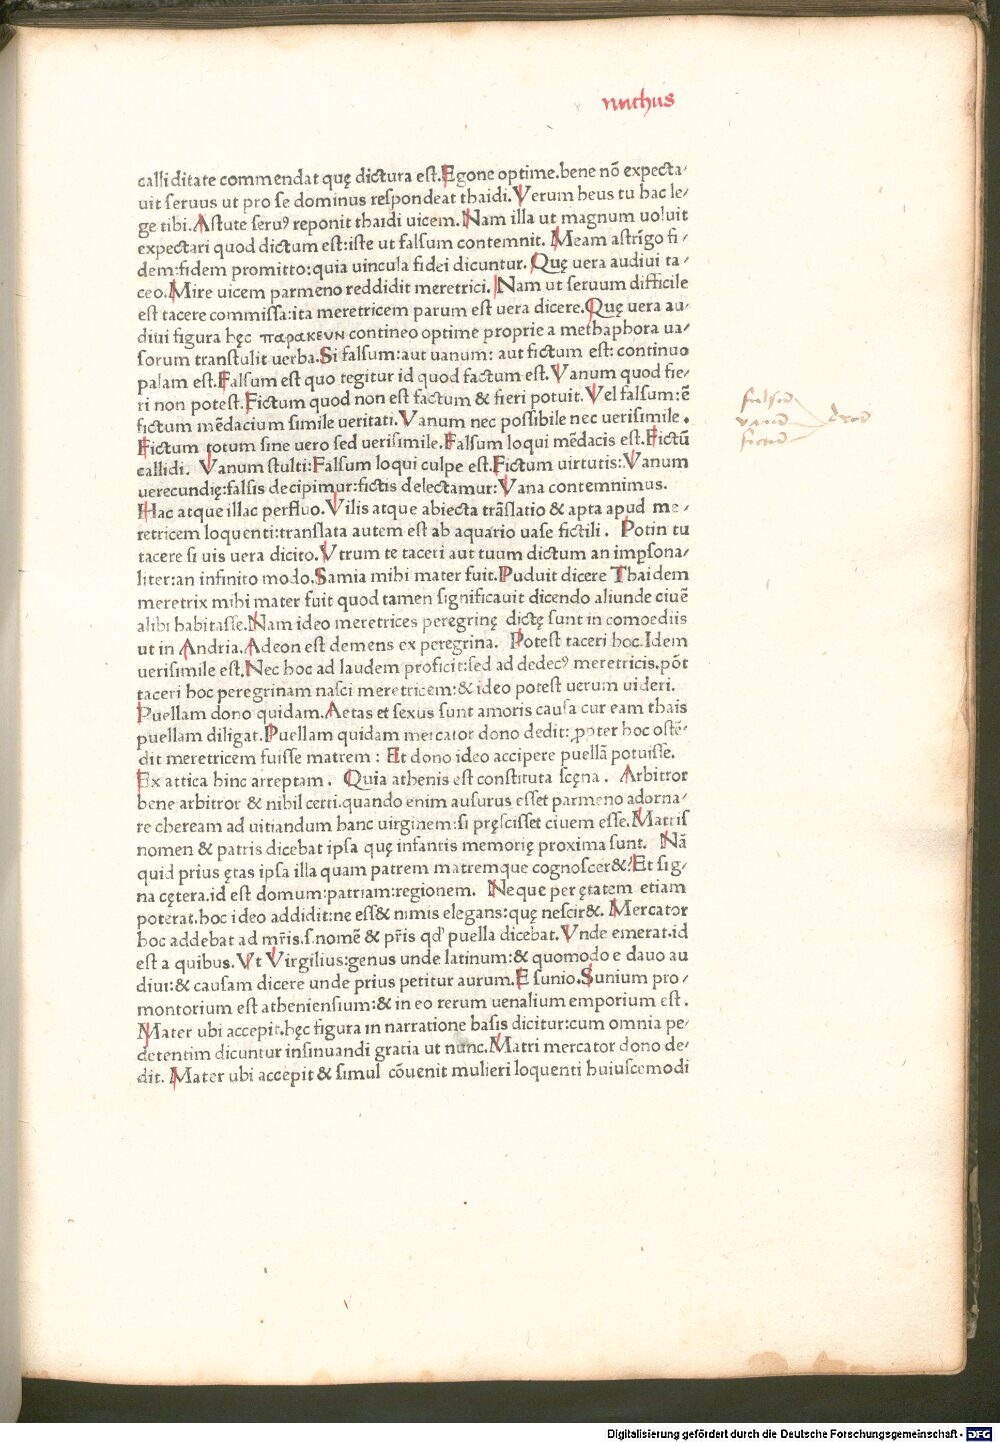 nuchus
calliditate commendat quę dictura est. Egone optime. bene nō expecta⸗
uit seruus ut pro se dominus respondeat thaidi. Verum heus tu hac le⸗
ge tibi. Astute seruꝰ reponit thaidi uicem. Nam illa ut magnum uoluit
expectari quod dictum est: iste ut falsum contemnit. Meam astrīgo fi⸗
dem: fidem promitto: quia uincula fidei dicuntur. Quę uera audiui ta⸗
ceo. Mire uicem parmeno reddidit meretrici. Nam ut seruum difficile
est tacere commissa: ita meretricem parum est uera dicere. Quę uera au⸗
diui figura hęc παρακευν contineo optime proprie a methaphora ua⸗
sorum transtulit uerba. Si falsum: aut uanum: aut fictum est: continuo
palam est. Falsum est quo tegitur id quod factum est. Vanum quod fie⸗
ri non potest. Fictum quod non est factum & fieri potuit. Vel falsum: ē
fictum mēdacium simile ueritati. Vanum nec possibile nec uerisimile.
Fictum totum sine uero sed uerisimile. Falsum loqui mēdacis est. Fictū
callidi. Vanum stulti: Falsum loqui culpe est. Fictum uirtutis: Vanum
uerecundię: falsis decipimur: fictis delectamur: Vana contemnimus.
Hac atque illac perfluo. Vilis atque abiecta trāslatio & apta apud me⸗
retricem loquenti: translata autem est ab aquario uase fictili. Potin tu
tacere si uis uera dicito. Vtrum te taceri aut tuum dictum an imp̱sona⸗
liter: an infinito modo. Samia mihi mater fuit. Puduit dicere Thaidem
meretrix mihi mater fuit quod tamen significauit dicendo aliunde ciuē
alibi habitasse. Nam ideo meretrices peregrinę dictę sunt in comoediis
ut in Andria. Adeon est demens ex peregrina. Potest taceri hoc. Idem
uerisimile est. Nec hoc ad laudem proficit: sed ad dedecꝰ meretricis. pōt
taceri hoc peregrinam nasci meretricem: & ideo potest uerum uideri.
Puellam dono quidam. Aetas et sexus sunt amoris causa cur eam thais
puellam diligat. Puellam quidam mercator dono dedit: ꝓpter hoc ostē⸗
dit meretricem fuisse matrem: Et dono ideo accipere puellā potuisse.
Ex attica hinc arreptam. Quia athenis est constituta scęna. Arbitror
bene arbitror & nihil certi. quando enim ausurus esset parmeno adorna⸗
re cheream ad uitiandum hanc uirginem: si pręscisset ciuem esse. Matris
nomen & patris dicebat ipsa quę infantis memorię proxima sunt. Nā
quid prius ętas ipsa illa quam patrem matremque cognoscer&? Et sig⸗
na cętera. id est domum: patriam: regionem. Neque per ętatem etiam
poterat. hoc ideo addidit: ne ess& nimis elegans: quę nescir&. Mercator
hoc addebat ad mr̄is. s. nomē & pr̄is qd' puella dicebat. Vnde emerat. id
est a quibus. Vt Virgilius: genus unde latinum: & quomodo e dauo au
diui: & causam dicere unde prius petitur aurum. E sunio. Sunium pro⸗
montorium est atheniensium: & in eo rerum uenalium emporium est.
Mater ubi accepit. hęc figura in narratione basis dicitur: cum omnia pe⸗
detentim dicuntur insinuandi gratia ut nunc. Matri mercator dono de⸗
dit. Mater ubi accepit & simul cōuenit mulieri loquenti huiuscemodi
falsum
vanum
fictum
Digitalisierung gefördert durch die Deutsche Forschungsgemeinschaft - DFG